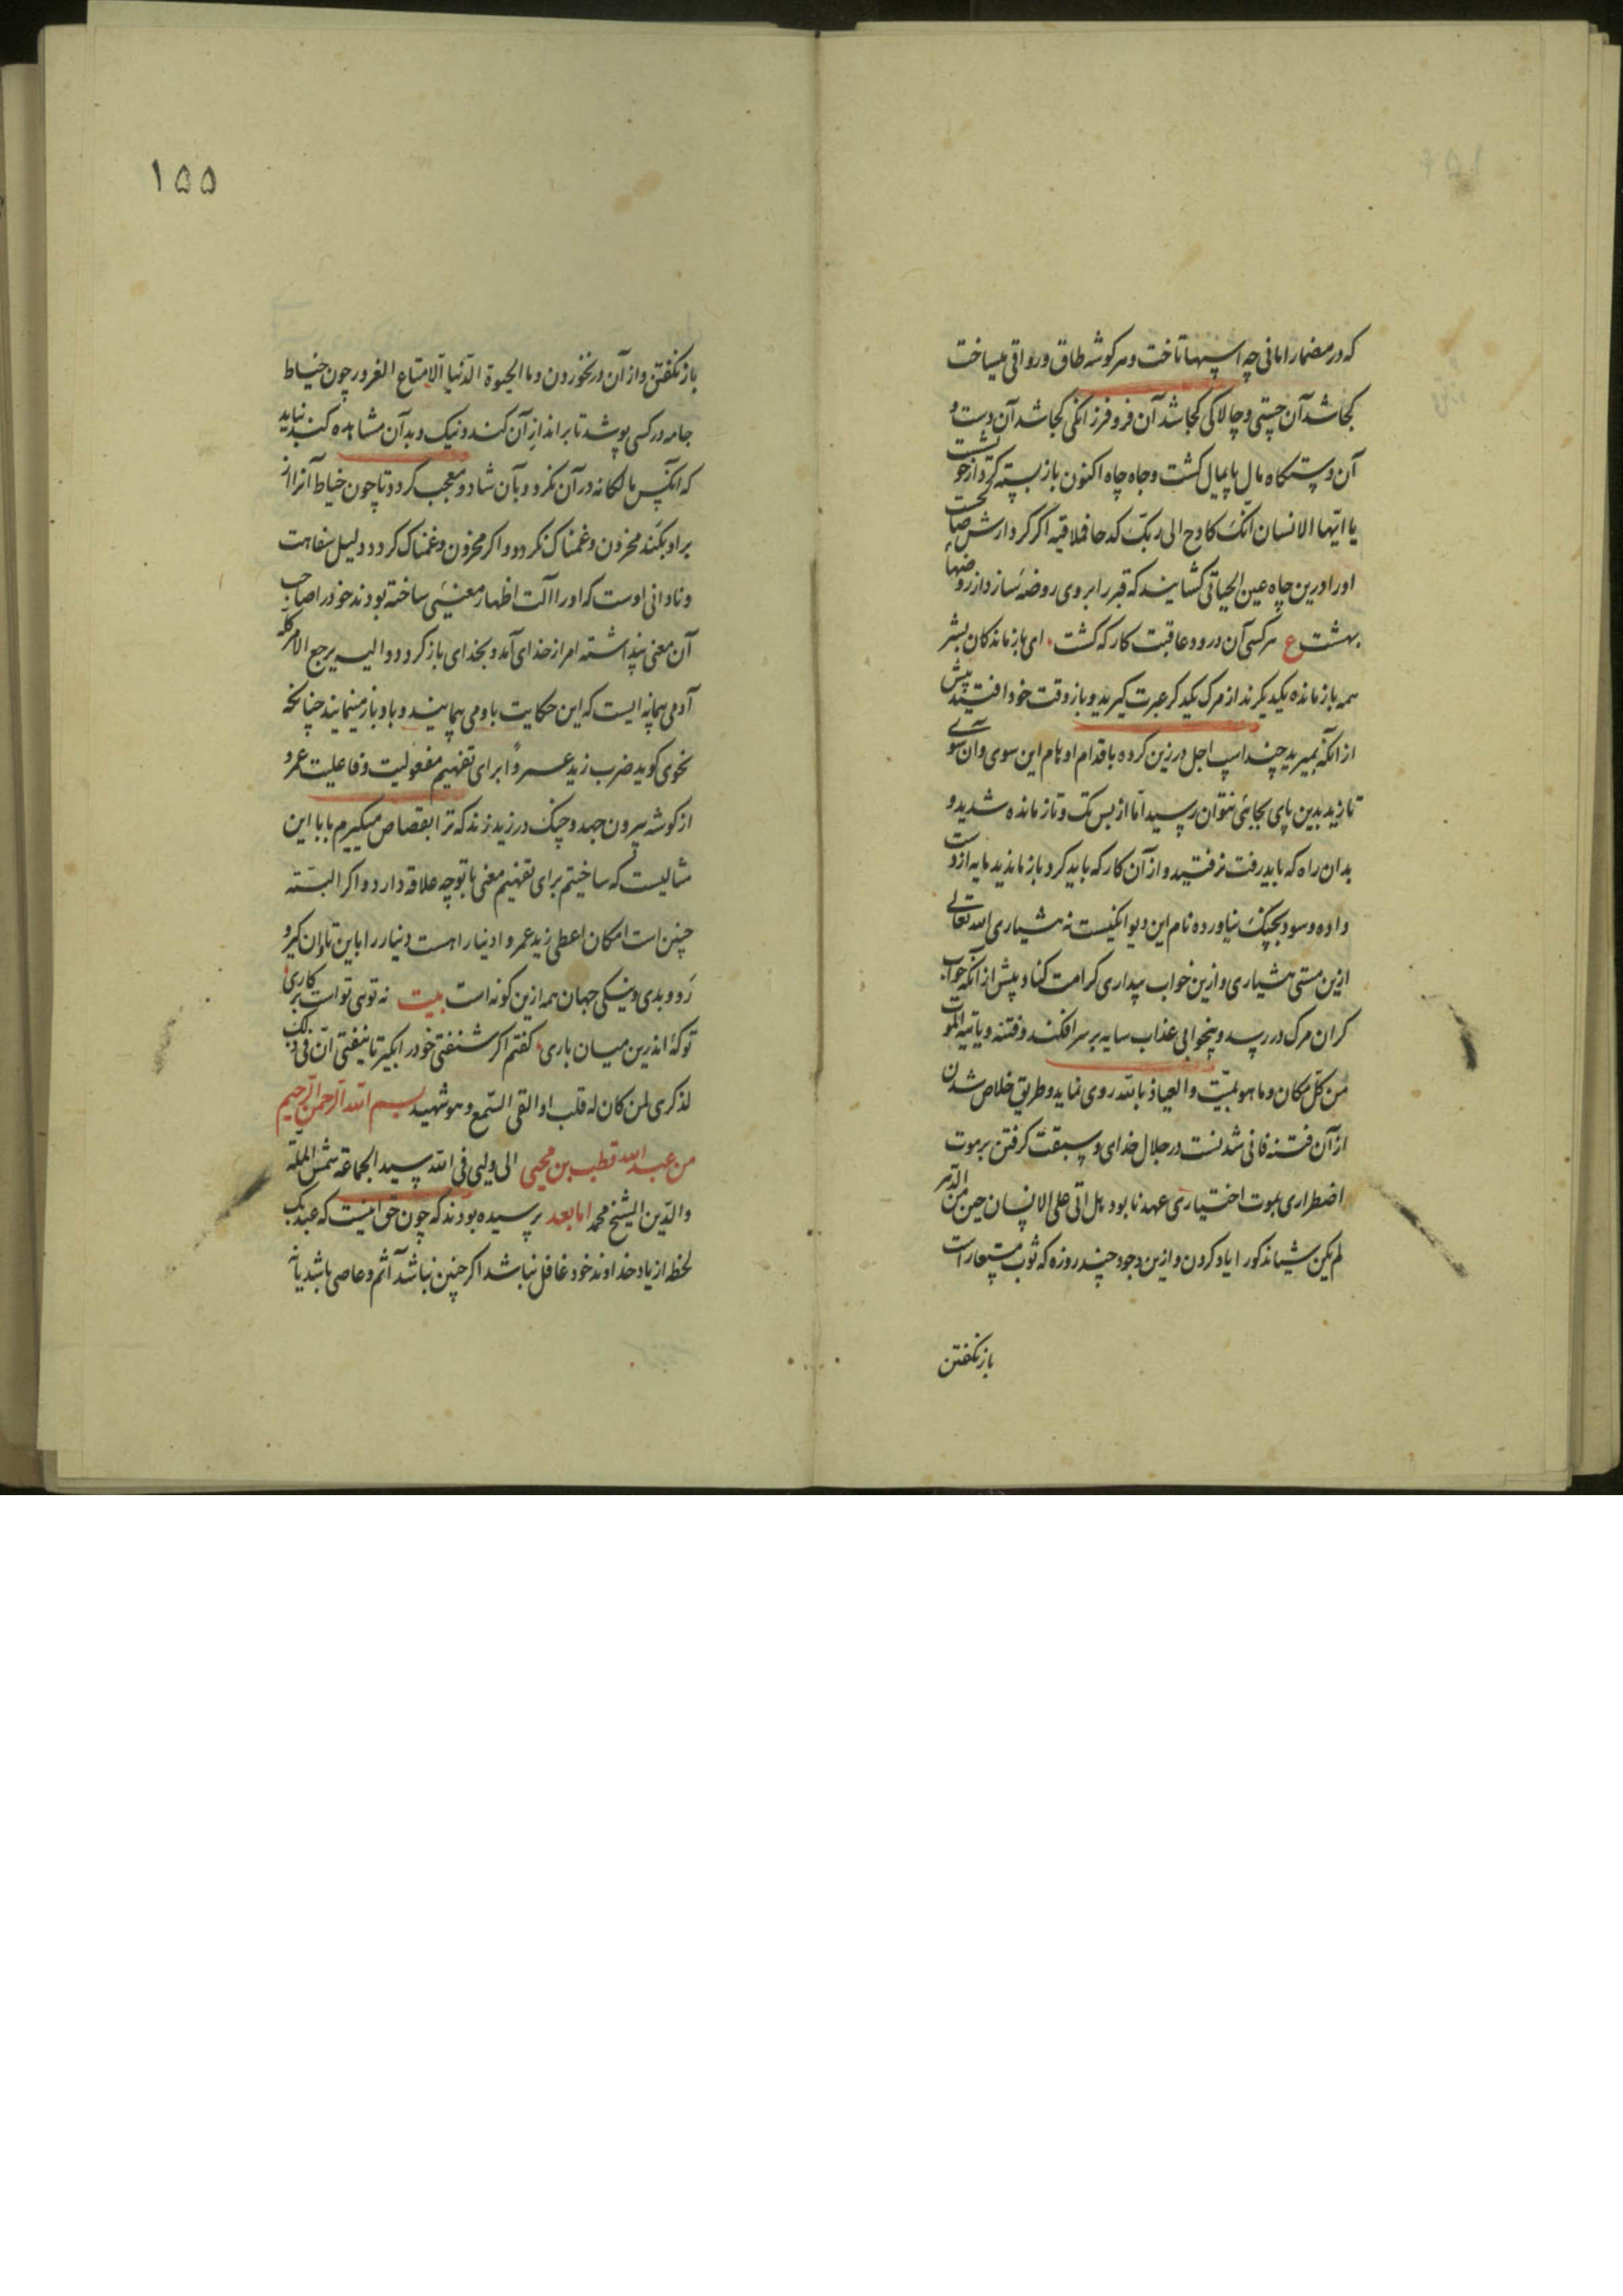 که در مضمار امانی چه اسپها تاخت و هر گوشه طاق و رواقی میساخت
کجا شد آن چستی و چالاکی کجا شد آن فر و فرزانگی کجا شد آن دست و
آن دستگاه مال پایمال گشت و جاه چاه اکنون باز بسته کردار خو گشت
یا ایها الانسان انک کادح الی ربک کدحا فملاقیه اگر کردارش صحت
او را درین چاه عین الحیاتی گشایند که قبر را بر وی روضهٔ سازد از روضهای
بهشت ع هر کسی آن درود عاقبت کار که کشت ای بازماندگان بشر
همه بازمانده یکدیگرند از مرگ یکدیگر عبرت گیرید و باز وقت خود افتید پیش
از آنکه بمیرید چند اسپ اجل در زین کرده باقدام اوهام این سوی و آن سوی
تازید بدین پای بجایی نتوان رسید اما از بس تک و تاز مانده شدید و
بدان راه که باید رفت نرفتید و از آن کار که باید کرد باز ماندید مایه از دست
داده و سود بچنگ نیاورده نام این دیوانگیست نه هشیاری الله تعالی
ازین مستی هشیاری و ازین خواب بیداری کرامت کناد پیش از آنکه خواب
گران مرگ در رسد و بیخوابی عذاب سایه بر سر افکند و فتنه و یأتیه الموت
من کل مکان و ما هو بمیت و العیاذ بالله روی نماید و طریق خلاص شدن
از آن فتنه فانی شدنست در جلال خدای و سبقت گرفتن بر موت
اضطراری بموت اختیاری عهد نابود هل اتی علی الانسان حین من الدهر
لم یکن شیئا مذکورا یاد کردن و ازین وجود چند روزه که ثوب مستعار است
بازنگفتن
۱۵۵
باز نگفتن و از آن در نخوردن و ما الحیوة الدنیا الا متاع الغرور چون خیاط
جامه در کسی پوشد تا بر اندازِ آن کند و نیک و بد آن مشاهده کند نباید
که آنکس مالکانه در آن نگرد و بآن شاد و معجب گردد تا چون خیاط آنرا از
بر او بکند محزون و غمناک نگردد و اگر محزون و غمناک گردد دلیل سفاهت
و نادانی اوست که او را آلت اظهار معنیئی ساخته بودند خود را صاحب
آن معنی پنداشته امر از خدای آمد و بخدای باز گردد و الیه یرجع الامر کله
آدمی بهانه ایست که این حکایت با و می پیمایند و با و باز مینمایند چنانکه
نحوی گوید ضرب زید عمروا برای تفهیم مفعولیت و فاعلیت عمرو
از گوشه بیرون جهد و چنگ در زید زند که ترا بقصاص میگیرم بابا این
مثالیست که ساختیم برای تفهیم معنی با تو چه علاقه دارد و اگر البته
چنین است امکان اعطی زید عمروا دینارا هست دینار را باین تاوان گیر و
رو و بدی و نیکی جهان همه ازین گونه است بیت نه تویی تو است بر کاری
تو کهٔ اندرین میان باری گفتم اگر شنفتی خود را بگیر تا نیفتی ان فی ذلک
لذکری لمن کان له قلب او القی السمع و هو شهید بسم الله الرحمن الرحیم
من عبد الله قطب بن محیی الی ولیی فی الله سید الجماعة شمس الملة
و الدین الشیخ محمد اما بعد پرسیده بودند که چون حق اینست که عبد یک
لحظه از یاد خداوند خود غافل نباشد اگر چنین نباشد آثم و عاصی باشد یا نه